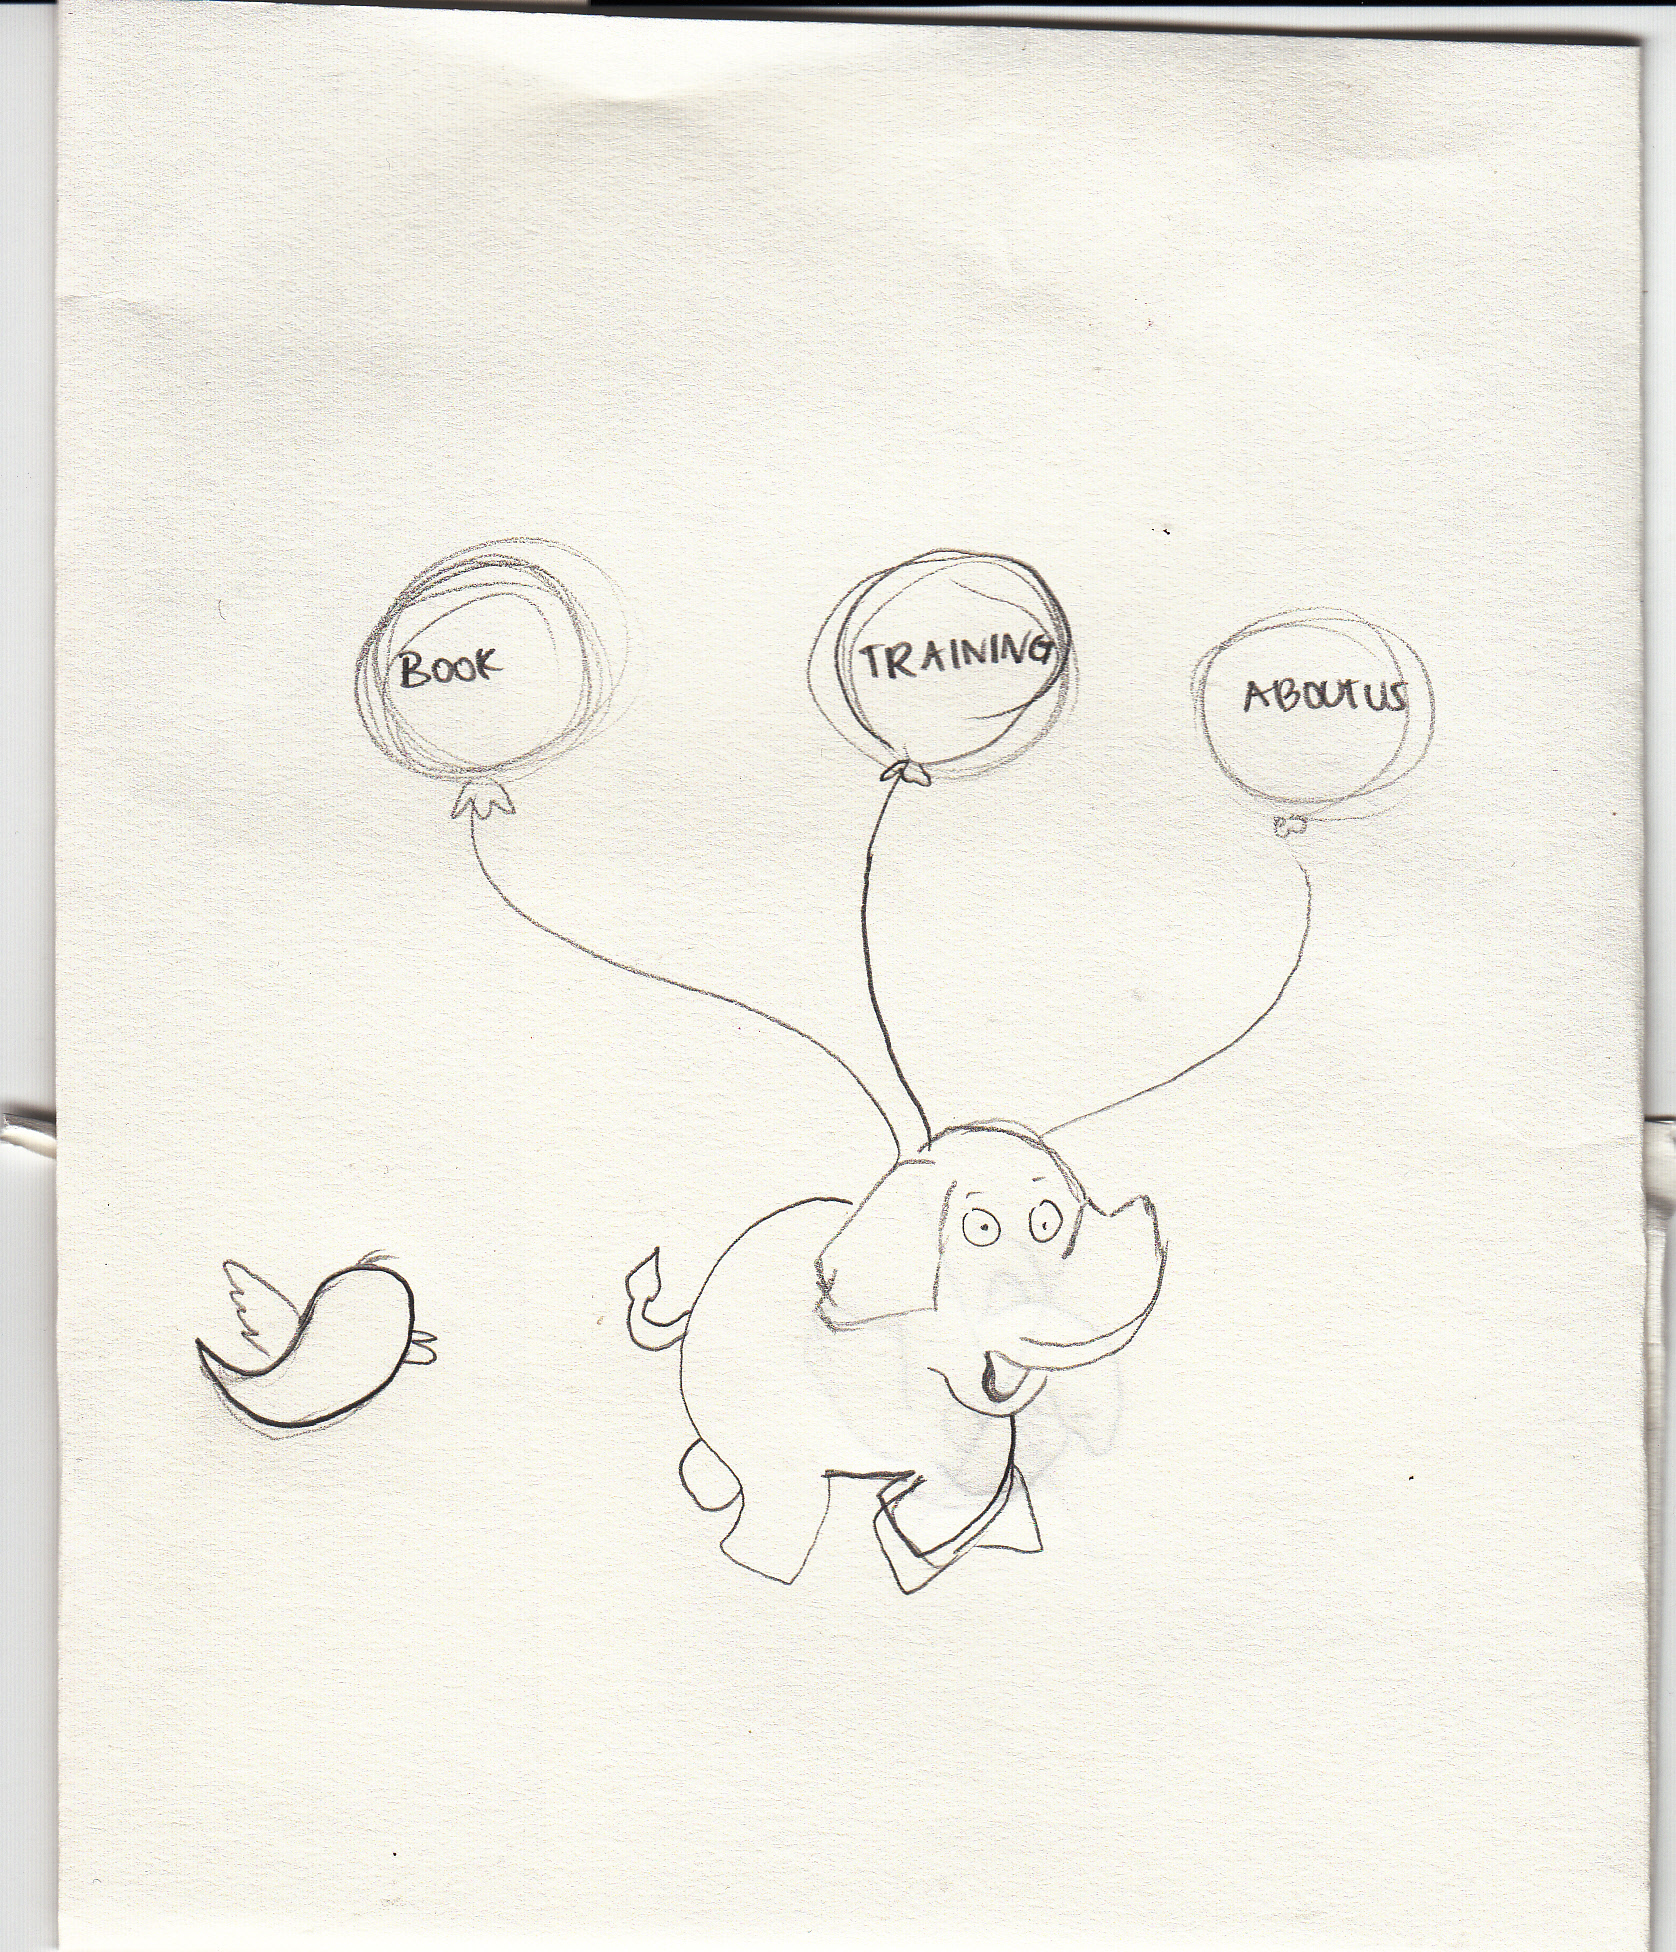 BOOK
TRAINING
ABOUT US